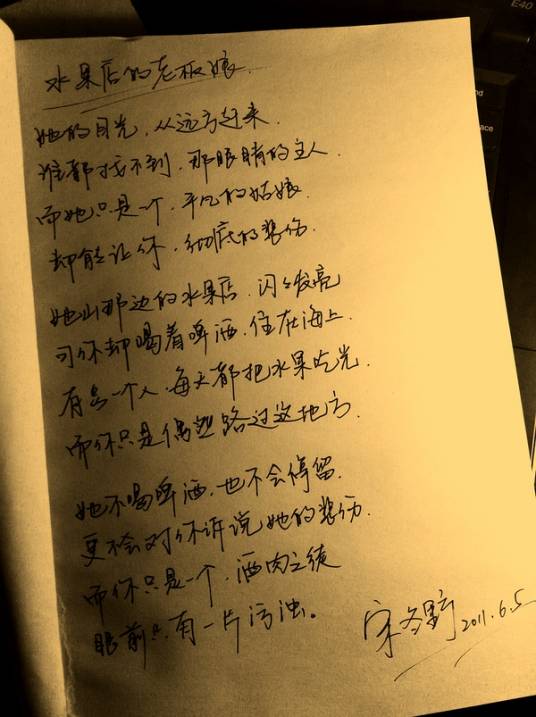 E40
水果店的老板娘
她的目光，从远方赶来
谁都找不到，那眼睛的主人
而她只是一个，平凡的姑娘
却能让你，彻底的悲伤
她山那边的水果店，闪闪发亮
可你却喝着啤酒，住在海上
有另一个人，每天都把水果吃光
而你只是偶然路过这地方
她不喝啤酒，也不会停留
更不会对你诉说她的悲伤
而你只是一个，酒肉之徒
眼前只有一片污浊。
宋冬野 2011.6.5